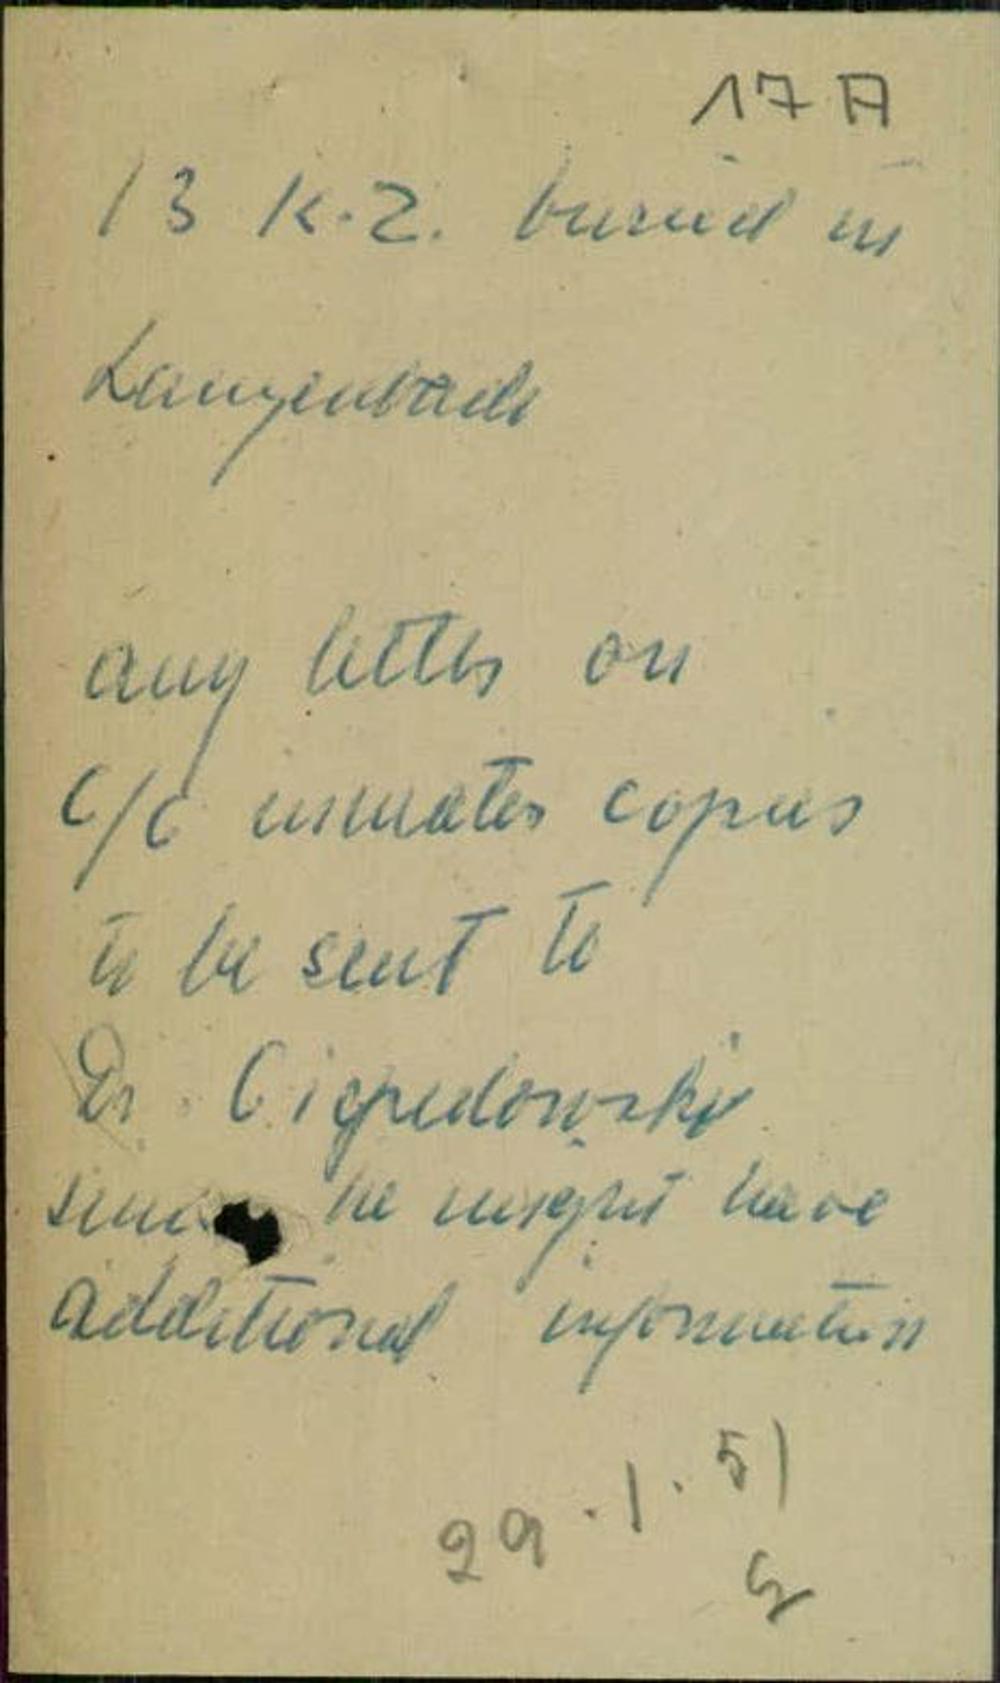 17 A
13 K.Z. buried in
Langenbach
any letters on
C/C inmates copies
to be sent to
Dr. Ciepielowski
since he might have
additional information
29.1.51